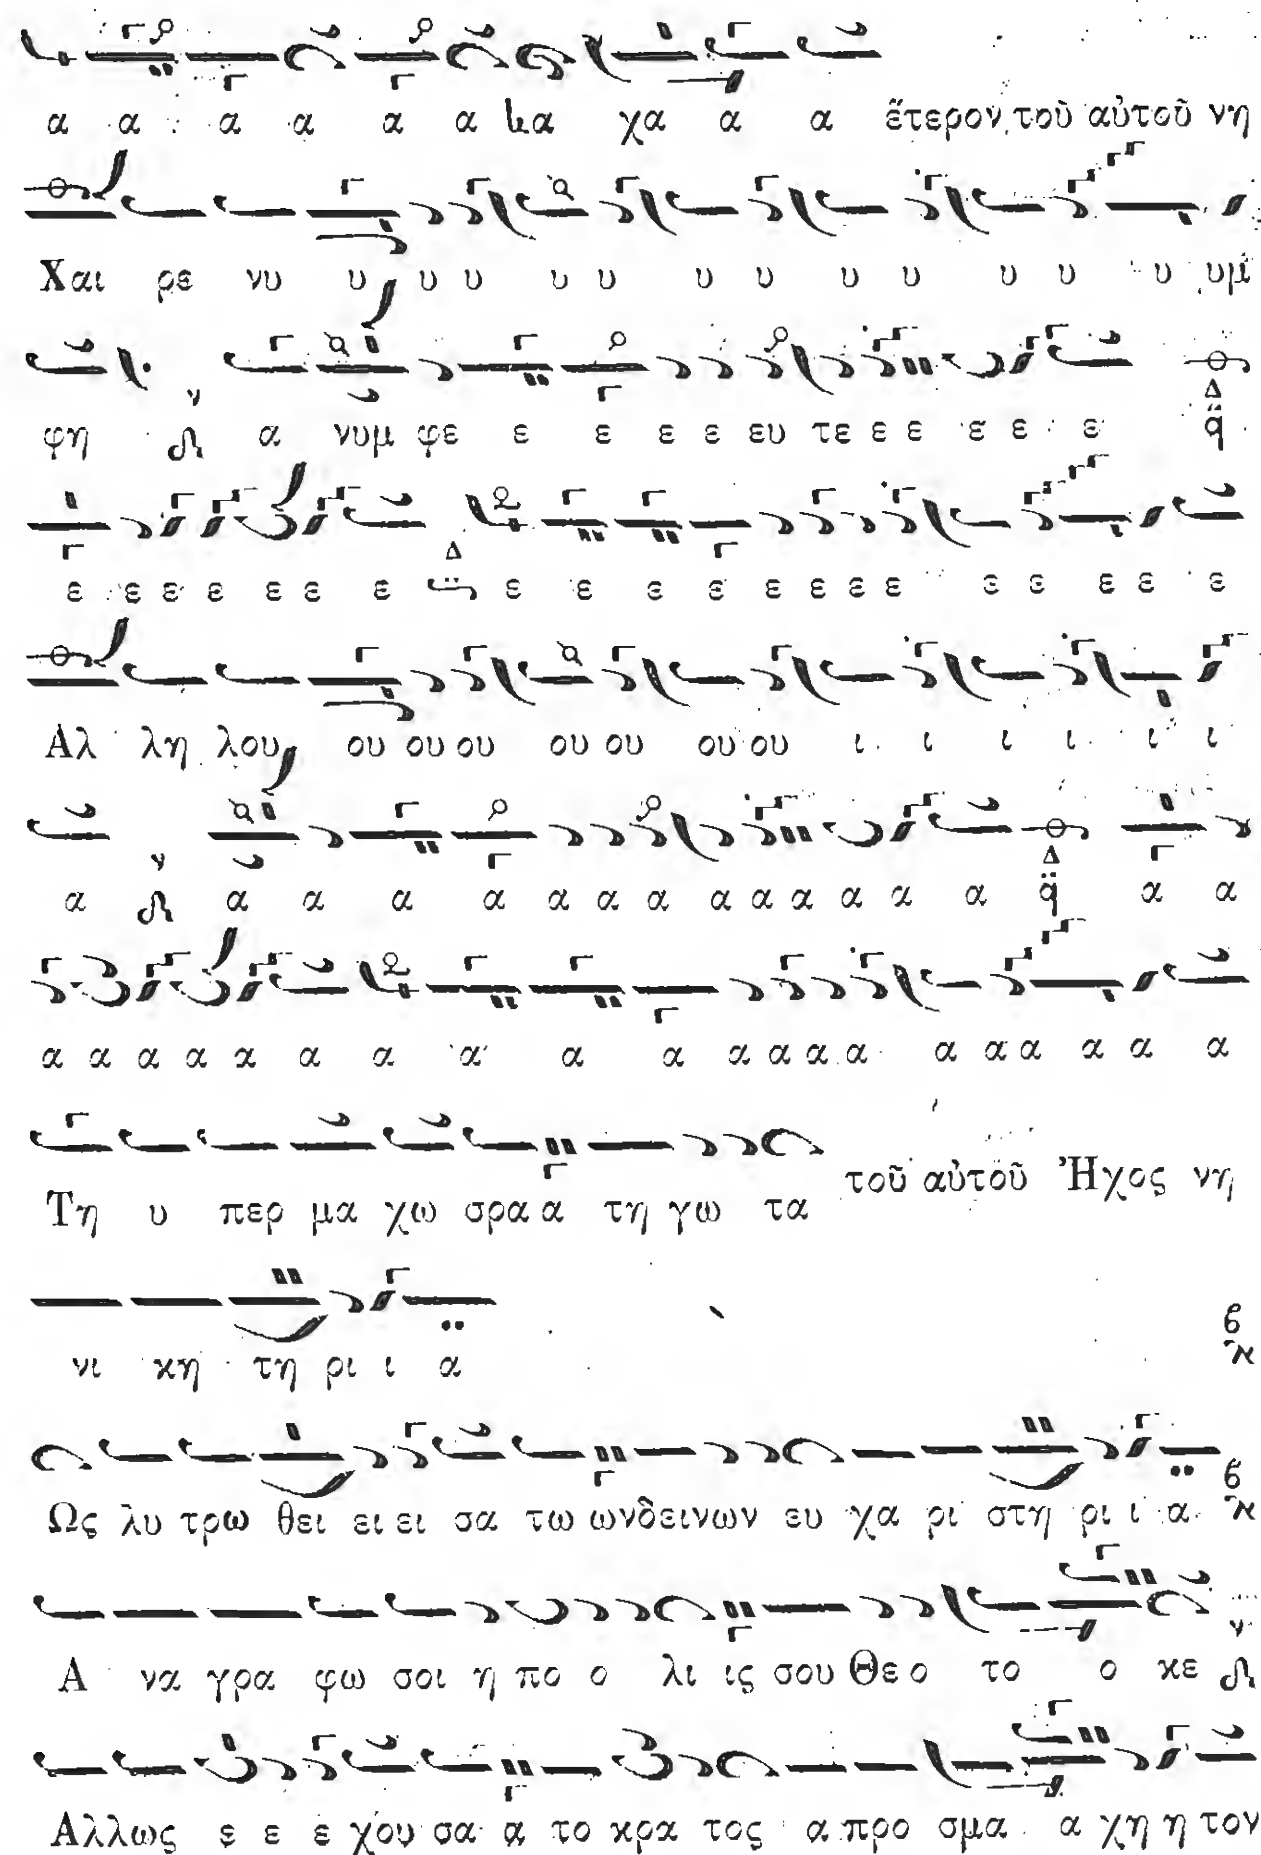 α α α α α α kα χα α α ἕτερον τοῦ αὐτοῦ νη
Χαι ρε νυ υ υ υ υ υ υ υ υ υ υ υ υ υμ
φη α νυμ φε ε ε ε ε ευ τε ε ε ε ε ε Δ q̈
ε ε ε ε ε ε ε Δ ε ε ε ε ε ε ε ε ε ε ε ε ε
Αλ λη λου ου ου ου ου ου ου ου ι ι ι ι ι ι
α ν α α α α α α α α α α α α α Δ q̈ α α
α α α α α α α α α α α α α α α α α α α α
Τη υ περ μα χω σρα α τη γω τα τοῦ αὐτοῦ Ἦχος νη
νι κη τη ρι ι α
Ως λυ τρω θει ει ει σα τω ωνδεινων ευ χα ρι στη ρι ι α
Α να γρα φω σοι η πο ο λι ις σου Θε ο το ο κε ν
Αλλως ε ε ε χου σα α το κρα τος α προ σμα α χη η τον